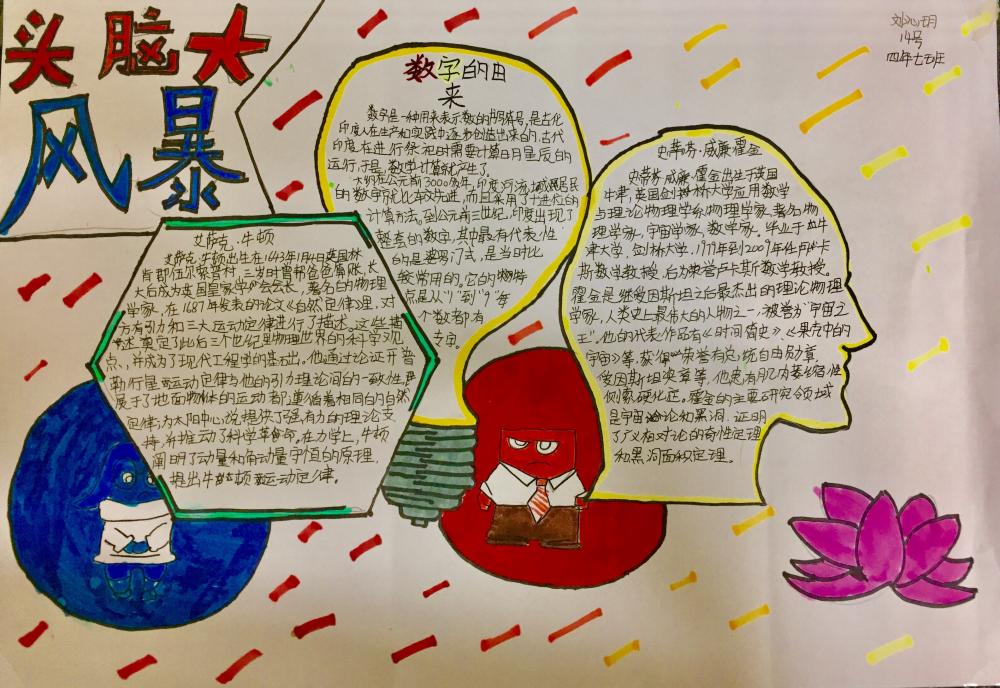 头脑大
风暴
刘心玥
14号
四年七班
数字的由
来
数字是一种用来表示数的书写符号,是古代
印度人在生产和实践中逐步创造出来的。古代
印度在进行祭祀时需要计算日月星辰的
运行,于是,数学计算就产生了。
大约在公元前3000多年,印度河流域居民
的数字就比较先进,而且采用了十进位的
计算方法。到公元前三世纪,印度出现了
整套的数字,其中最有代表性
的是婆罗门式,是当时比
较常用的。它的特
点是从"1"到"9"每
个数都有
专字。
艾萨克·牛顿
艾萨克·牛顿出生在1643年1月4日英国林
肯郡伍尔索普村,三岁时
大后成为英国皇家学会会长,著名的物理
学家,在1687年发表的论文《自然定律》里,对
万有引力和三大运动定律进行了描述。这些描
述奠定了此后三个世纪里物理世界的科学观
点,并成为了现代工程学的基础。他通过论证开普
勒行星运动定律与他的引力理论间的一致性,
展于了地面物体的运动都遵循着相同的自然
定律;为太阳中心说提供了强有力的理论支
持,并推动了科学革命。在力学上,牛顿
阐明了动量和角动量守恒的原理,
提出牛顿运动定律。
史蒂芬·威廉霍金
史蒂芬·威廉·霍金出生于英国
牛津,英国剑桥大学应用数学
与理论物理学系物理学家,著名物
理学家,宇宙学家,数学家。毕业于牛
津大学,剑桥大学,1979年到2009年任卢卡
斯数学教授,后为荣誉卢卡斯数学教授。
霍金是继爱因斯坦之后最杰出的理论物理
学家,人类史上最伟大的人物之一,被誉为"宇宙之
王"。他的代表作品有《时间简史》、《果壳中的
宇宙》等,获得荣誉有总统自由勋章,
爱因斯坦奖章等,他患有肌肉萎缩性
侧索硬化症。霍金的主要研究领域
是宇宙论和黑洞,证明
了广义相对论的奇性定理
和黑洞面积定理。